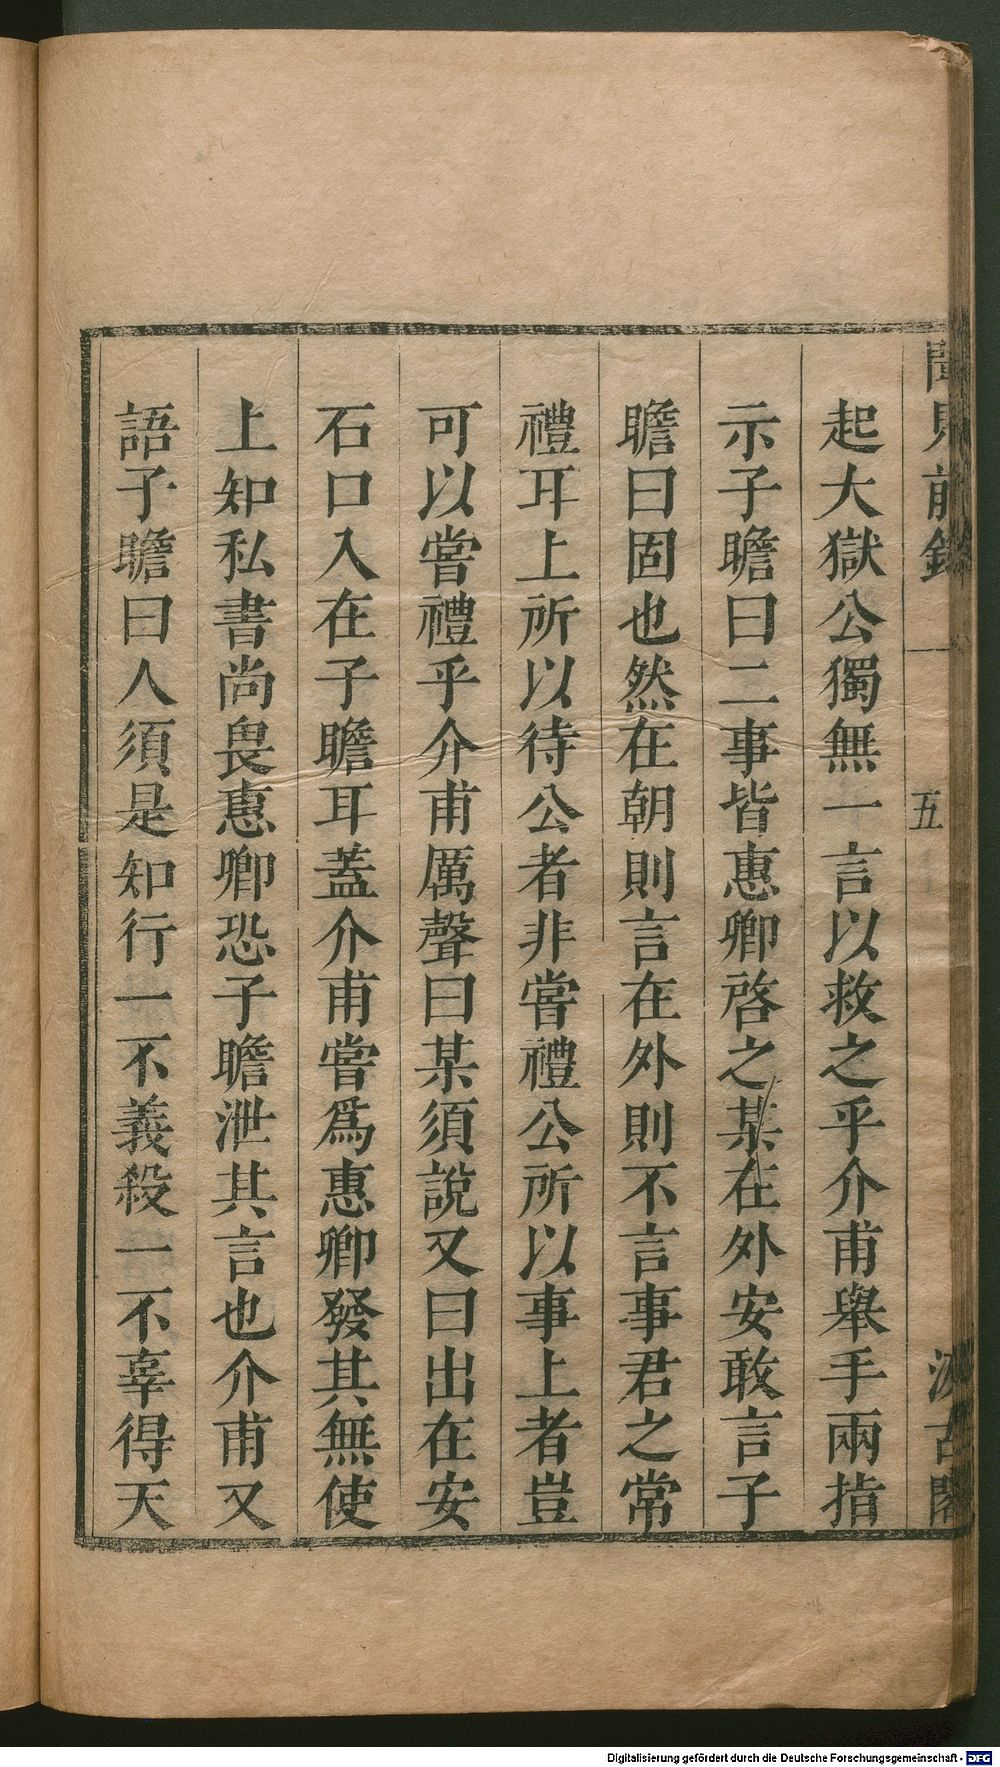 聞見前錄 五 汲古閣
起大獄公獨無一言以救之乎介甫舉手兩指
示子瞻曰二事皆惠卿啓之某在外安敢言子
瞻曰固也然在朝則言在外則不言事君之常
禮耳上所以待公者非嘗禮公所以事上者豈
可以嘗禮乎介甫厲聲曰某須說又曰出在安
石口入在子瞻耳蓋介甫嘗爲惠卿發其無使
上知私書尚畏惠卿恐子瞻泄其言也介甫又
語子瞻曰人須是知行一不義殺一不辜得天
Digitalisierung gefördert durch die Deutsche Forschungsgemeinschaft - DFG